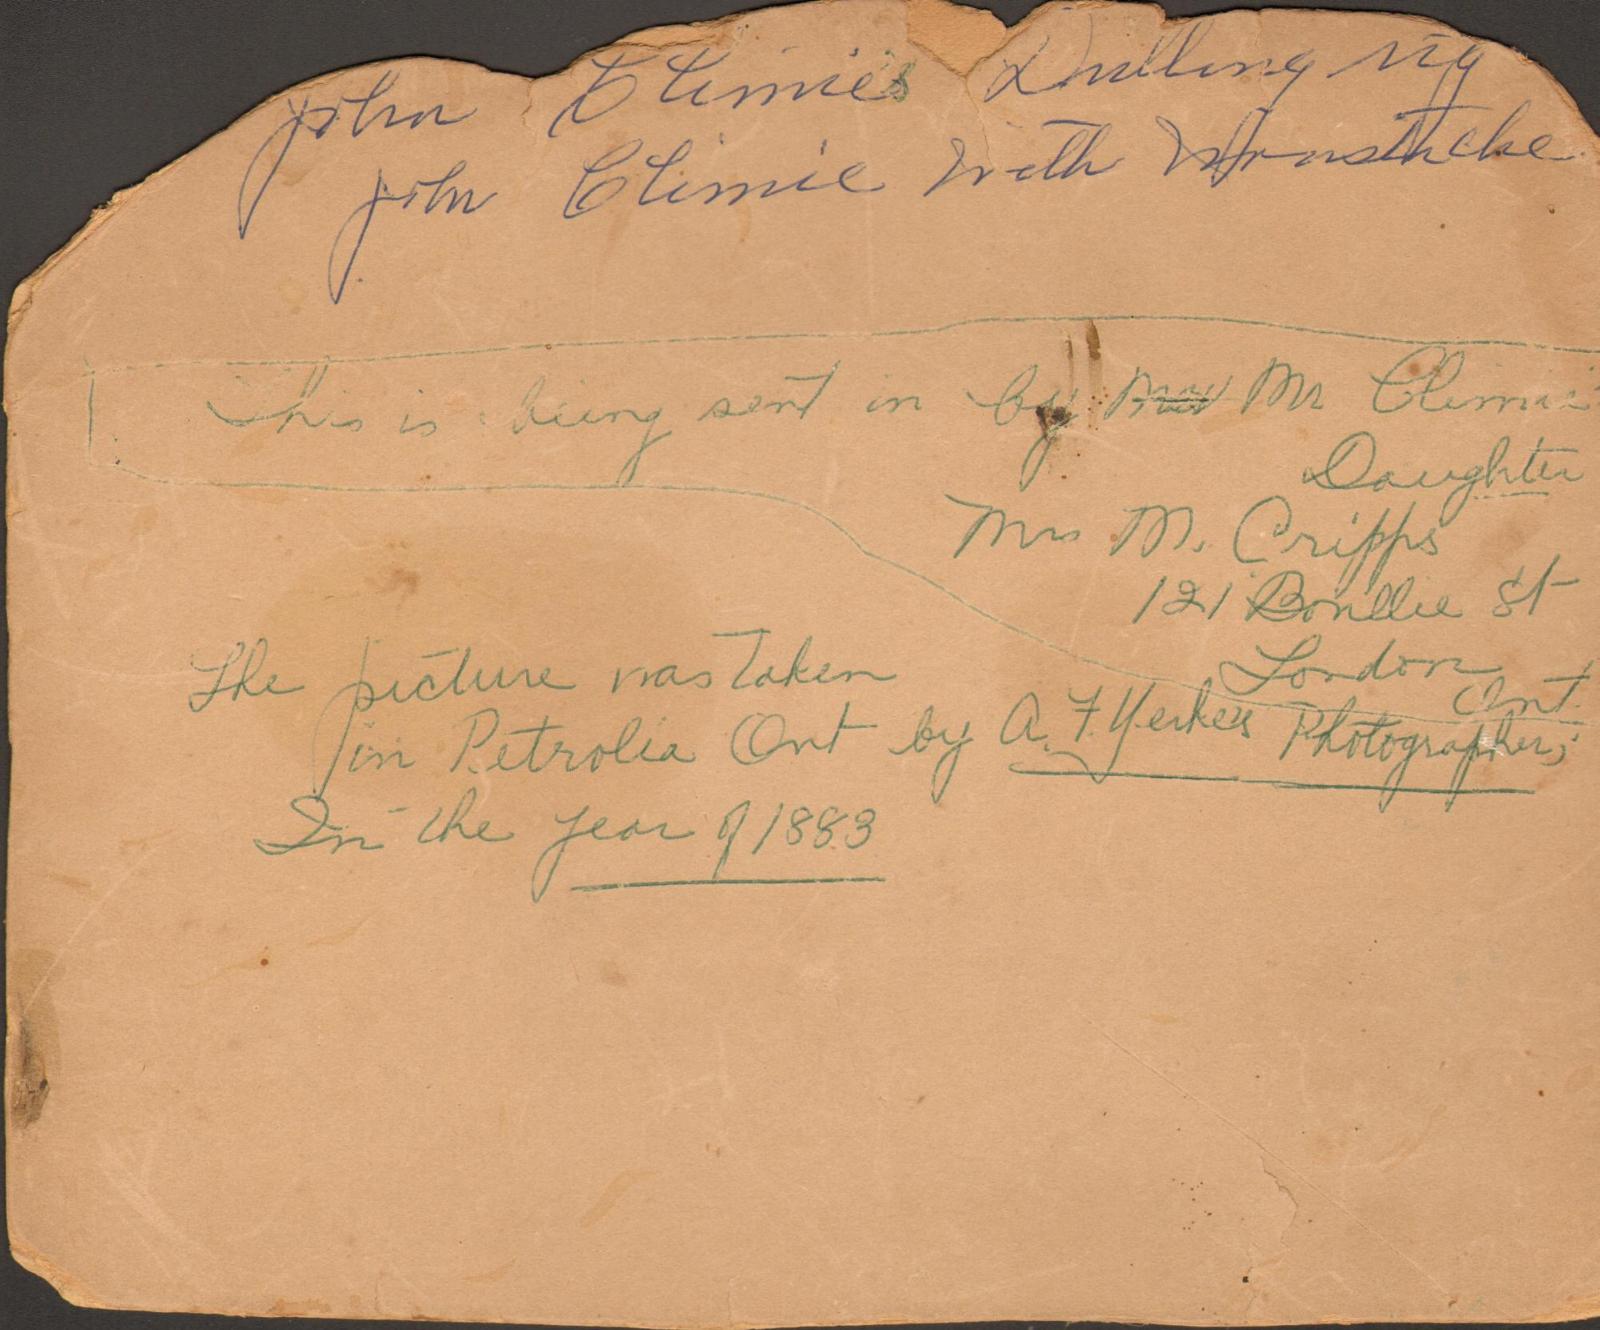 John Climie's Drilling rig
John Climie With Moustache
This is being sent in by Mr Climie
Daughter
Mrs M. Cripps
121 St
London
Ont.
The picture was taken
in Petrolia Ont by A. F. Yerkes Photographers
In the year of 1883